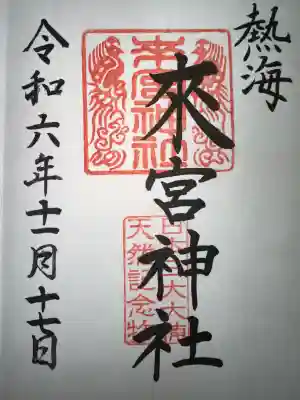 熱海
來宮神社
令和六年十一月十七日
來宮神社
日本三大大楠
天然記念物